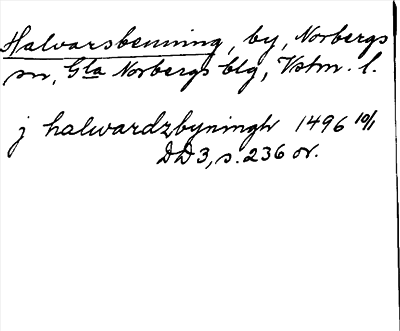 Halvarsbenning, by, Norbergs
sn, Gla Norbergs blg, Vstm. l.
j halwardzbyningh 1496 10/1
DD3, s. 236 or.